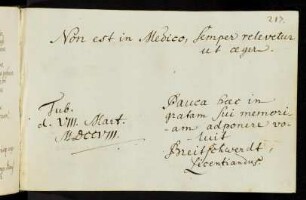 217.
Non est in Medico, semper relevetur
ut æger.
Tub.
d. VIII. Mart.
MDCCVIII.
Pauca hæc in
gratam sui memori-
am adponere vo-
luit
Breitschwerdt,
Licentiandus